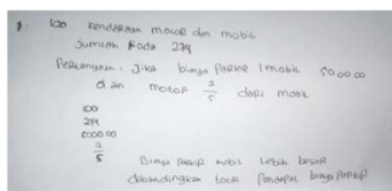 1. 100 kendaraan motor dan mobil
Jumlah Roda 274
Pertanyaan. Jika biaya parkir 1 mobil 5000.00
dan motor 2/5 dari mobil
100
274
5000.00
2/5
Biaya parkir mobil lebih besar
dibandingkan total pendapat biaya parkir?